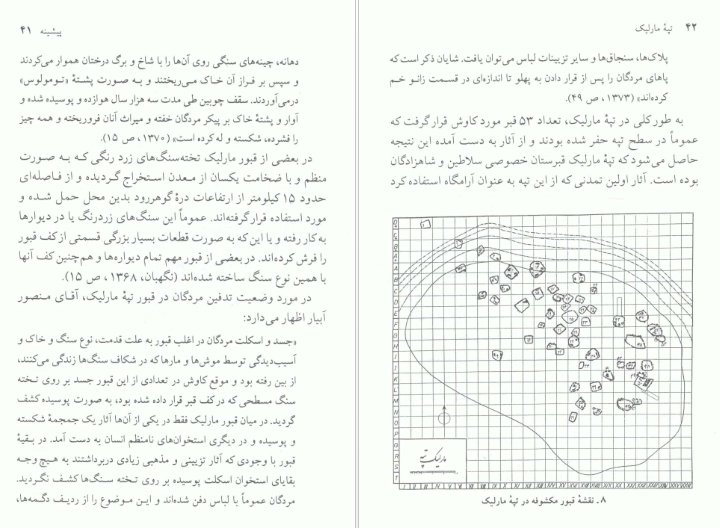 پیشینه ۴۱
دهانه، چینه‌های سنگی روی آن‌ها را با شاخ و برگ درختان هموار می‌کردند
و سپس بر فراز آن خاک می‌ریختند و به صورت پشتهٔ «تومولوس»
درمی‌آوردند. سقف چوبین طی مدت سه هزار سال هوازده و پوسیده شده و
آوار و پشتهٔ خاک بر پیکر مردگان خفته و میراث آنان فروریخته و همه چیز
را فشرده، شکسته و له کرده است» (۱۳۷۰، ص ۱۵).
در بعضی از قبور مارلیک تخته‌سنگ‌های زرد رنگی که به صورت
منظم و با ضخامت یکسان از معدن استخراج گردیده و از فاصله‌ای
حدود ۱۵ کیلومتر از ارتفاعات درهٔ گوهررود بدین محل حمل شده و
مورد استفاده قرار گرفته‌اند. عموماً این سنگ‌های زردرنگ یا در دیوارها
به کار رفته و یا این که به صورت قطعات بسیار بزرگی قسمتی از کف قبور
را فرش کرده‌اند. در بعضی از قبور مهم تمام دیواره‌ها و هم‌چنین کف آنها
با همین نوع سنگ ساخته شده‌اند (نگهبان، ۱۳۶۸، ص ۱۵).
در مورد وضعیت تدفین مردگان در قبور تپهٔ مارلیک، آقای منصور
آبیار اظهار می‌دارد:
«جسد و اسکلت مردگان در اغلب قبور به علت قدمت، نوع سنگ و خاک و
آسیب‌دیدگی توسط موش‌ها و مارها که در شکاف سنگ‌ها زندگی می‌کنند،
از بین رفته بود و موقع کاوش در تعدادی از این قبور جسد بر روی تخته
سنگ مسطحی که در کف قبر قرار داده شده بود، به صورت پوسیده کشف
گردید. در میان قبور مارلیک فقط در یکی از آن‌ها آثار یک جمجمهٔ شکسته
و پوسیده و در دیگری استخوان‌های نامنظم انسان به دست آمد. در بقیهٔ
قبور با وجودی که آثار تزیینی و مذهبی زیادی دربرداشتند به هیچ وجه
بقایای استخوان اسکلت پوسیده بر روی تخته سنگ‌ها کشف نگردید.
مردگان عموماً با لباس دفن شده‌اند و این موضوع را از ردیف دگمه‌ها،
۴۲ تپهٔ مارلیک
پلاک‌ها، سنجاق‌ها و سایر تزیینات لباس می‌توان یافت. شایان ذکر است که
پاهای مردگان را پس از قرار دادن به پهلو تا اندازه‌ای در قسمت زانو خم
کرده‌اند» (۱۳۷۳، ص ۴۹).
به طورکلی در تپهٔ مارلیک، تعداد ۵۳ قبر مورد کاوش قرار گرفت که
عموماً در سطح تپه حفر شده بودند و از آثار به دست آمده این نتیجه
حاصل می‌شود که تپهٔ مارلیک قبرستان خصوصی سلاطین و شاهزادگان
بوده است. آثار اولین تمدنی که از این تپه به عنوان آرامگاه استفاده کرد
مارلیک تپه
۸ ـ نقشهٔ قبور مکشوفه در تپهٔ مارلیک